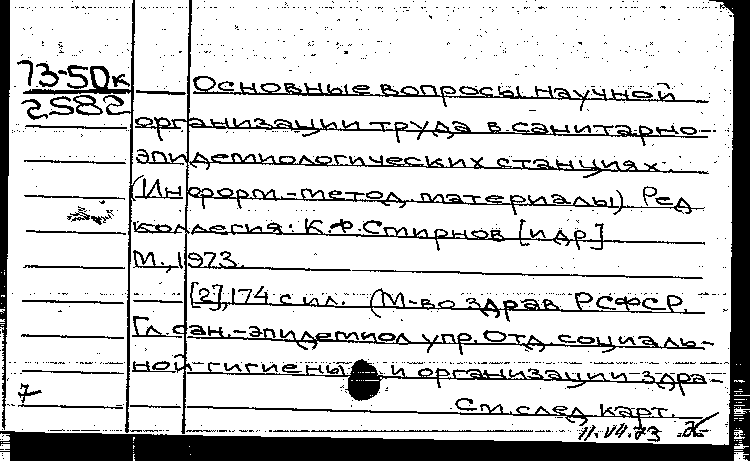 73-50к
2582
Основные вопросы научной
организации труда в санитарно-
эпидемиологических станциях.
(Информ.-метод. материалы). Ред
коллегия: К.Ф. Смирнов [и др.]
М., 1973.
[2], 174 с ил. (М-во здрав. РСФСР.
Гл. сан.-эпидемиол упр. Отд. социаль-
ной гигиены и организации здра-
См. след. карт.
7
11.VII.73